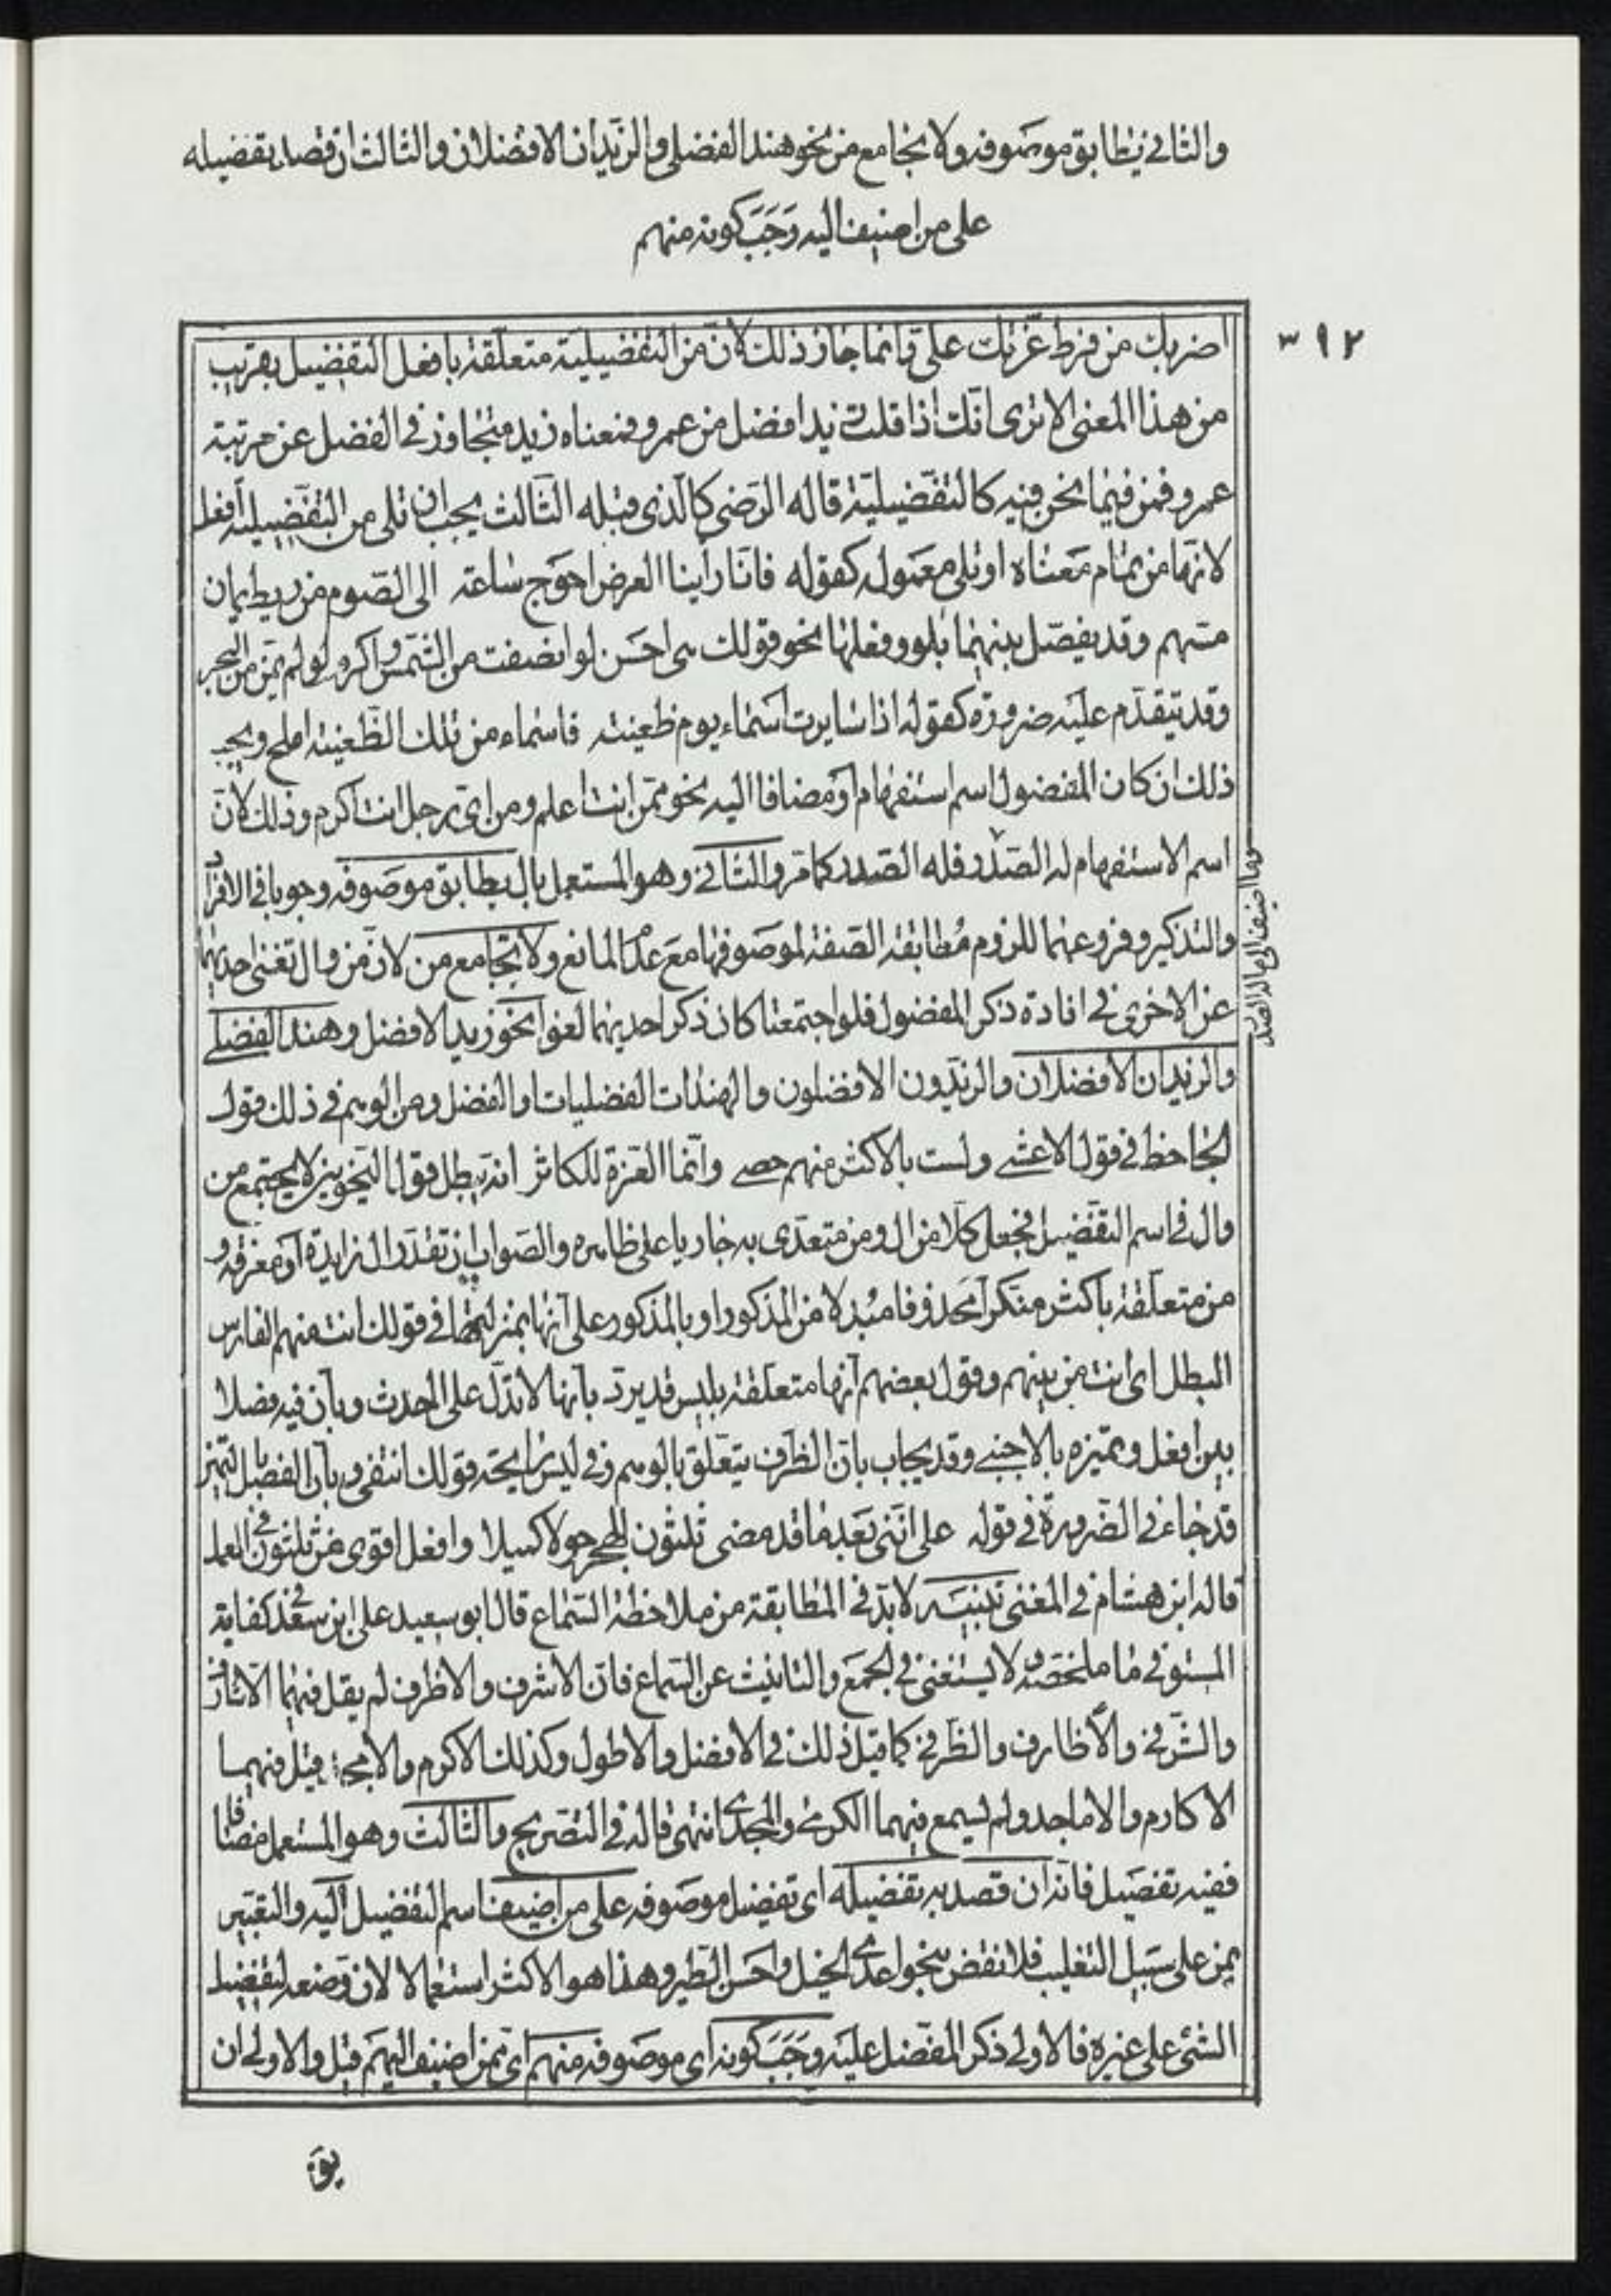 والثاني يطابق موصوفه ولا يجامع من نحو هند الفضلى والزيدان الافضلان والثالث ان قصد تفضيله
على من اضيف اليه وَجَبَ كونه منهم
٣٩٢
اضربك من فرط عزتك على وانما جاز ذلك لان من التفضيلية متعلقة بافعل التفضيل بقريب
من هذا المعنى الا ترى انك اذا قلت زيد افضل من عمرو فمعناه زيد متجاوز في الفضل عن مرتبة
عمرو فمن فيما نحن فيه كالتفضيلية قاله الرضى كالذى قبله الثالث يجب ان تلى من التفضيلية افعل
لانها من تمام معناه او تلى معموله كقوله فانا راينا العرض احوج ساعة الى الصوم من ريط يمان
مسهم وقد يفصل بينهما بلو وفعلها نحو قولك هى احسن لو انصفت من الشمس واكرم لو لم تمن من البحر
وقد يتقدم عليه ضرورة كقوله اذا سايرت اسماء يوم ظعينة فاسماء من تلك الظعينة املح ويجب
ذلك ان كان المفضول اسم استفهام او مضافا اليه نحو ممن انت اعلم ومن اى رجل انت اكرم وذلك لان
اسم الاستفهام له الصدر فله الصدر كما مر والثاني وهو المستعمل بال يطابق موصوفه وجوبا في الافراد
وما اضيف الى ما له الصدر
والتذكير وفروعهما للزوم مطابقة الصفة لموصوفها مع عدم المانع ولا يجامع من لان من وال تغنى احديهما
عن الاخرى في افادة ذكر المفضول فلو اجتمعتا كان ذكر احديهما لغوا نحو زيد الافضل وهند الفضلى
والزيدان الافضلان والزيدون الافضلون والهندات الفضليات او الفضل ومن الوهم في ذلك قول
الجاحظ في قول الاعشى ولست بالاكثر منهم حصى وانما العزة للكاثر انه يبطل قول النحويين لا يجتمع من
وال في اسم التفضيل فجعل كلا من ال ومن معتدى به جاريا على ظاهره والصواب ان تقدر ال زايدة او معرفة و
من متعلقة باكثر منكرا محذوفا مبدلا من المذكور او بالمذكور على انها بمنزلتها في قولك انت منهم الفارس
البطل اى انت من بينهم وقول بعضهم انها متعلقة بليس قد يرد بانها لا تدل على الحدث وبان فيه فصلا
بين افعل وتميزه بالاجنبى وقد يجاب بان الظرف يتعلق بالوهم وفي ليس رايحة قولك انتفى وبان الفصل بالتميز
قد جاء في الضرورة في قوله على اننى بعد ما قد مضى ثلثون للهجر حولا كميلا وافعل اقوى من ثلثون في العمل
قاله ابن هشام في المغنى تنبيه لا بد في المطابقة من ملاحظة السماع قال ابو سعيد على ابن سعد في كفاية
المستوفى ما ملخصه ولا يستغنى في الجمع والتانيث عن السماع فان الاشرف والاظرف لم يقل فيهما الاشارف
والشرفى والاظارف والظرفى كما قيل ذلك في الافضل والاطول وكذلك الاكرم والامجد قيل فيهما
الاكارم والاماجد ولم يسمع فيهما الكرمى والمجدى انتهى قاله في التصريح والثالث وهو المستعمل مضافا
ففيه تفصيل فانه ان قصد به تفضيله اى تفضيل موصوفه على من اضيف اسم التفضيل اليه والتعبير
بمن على سبيل التغليب فلا نقض بنحو اعدى الخيل واحسن الطير وهذا هو الاكثر استعمالا لان وضعه لتفضيل
الشئ على غيره فالاولى ذكر المفضل عليه وَجَبَ كونه اى موصوفه منهم اى ممن اضيف اليهم قيل والاولى ان
يق